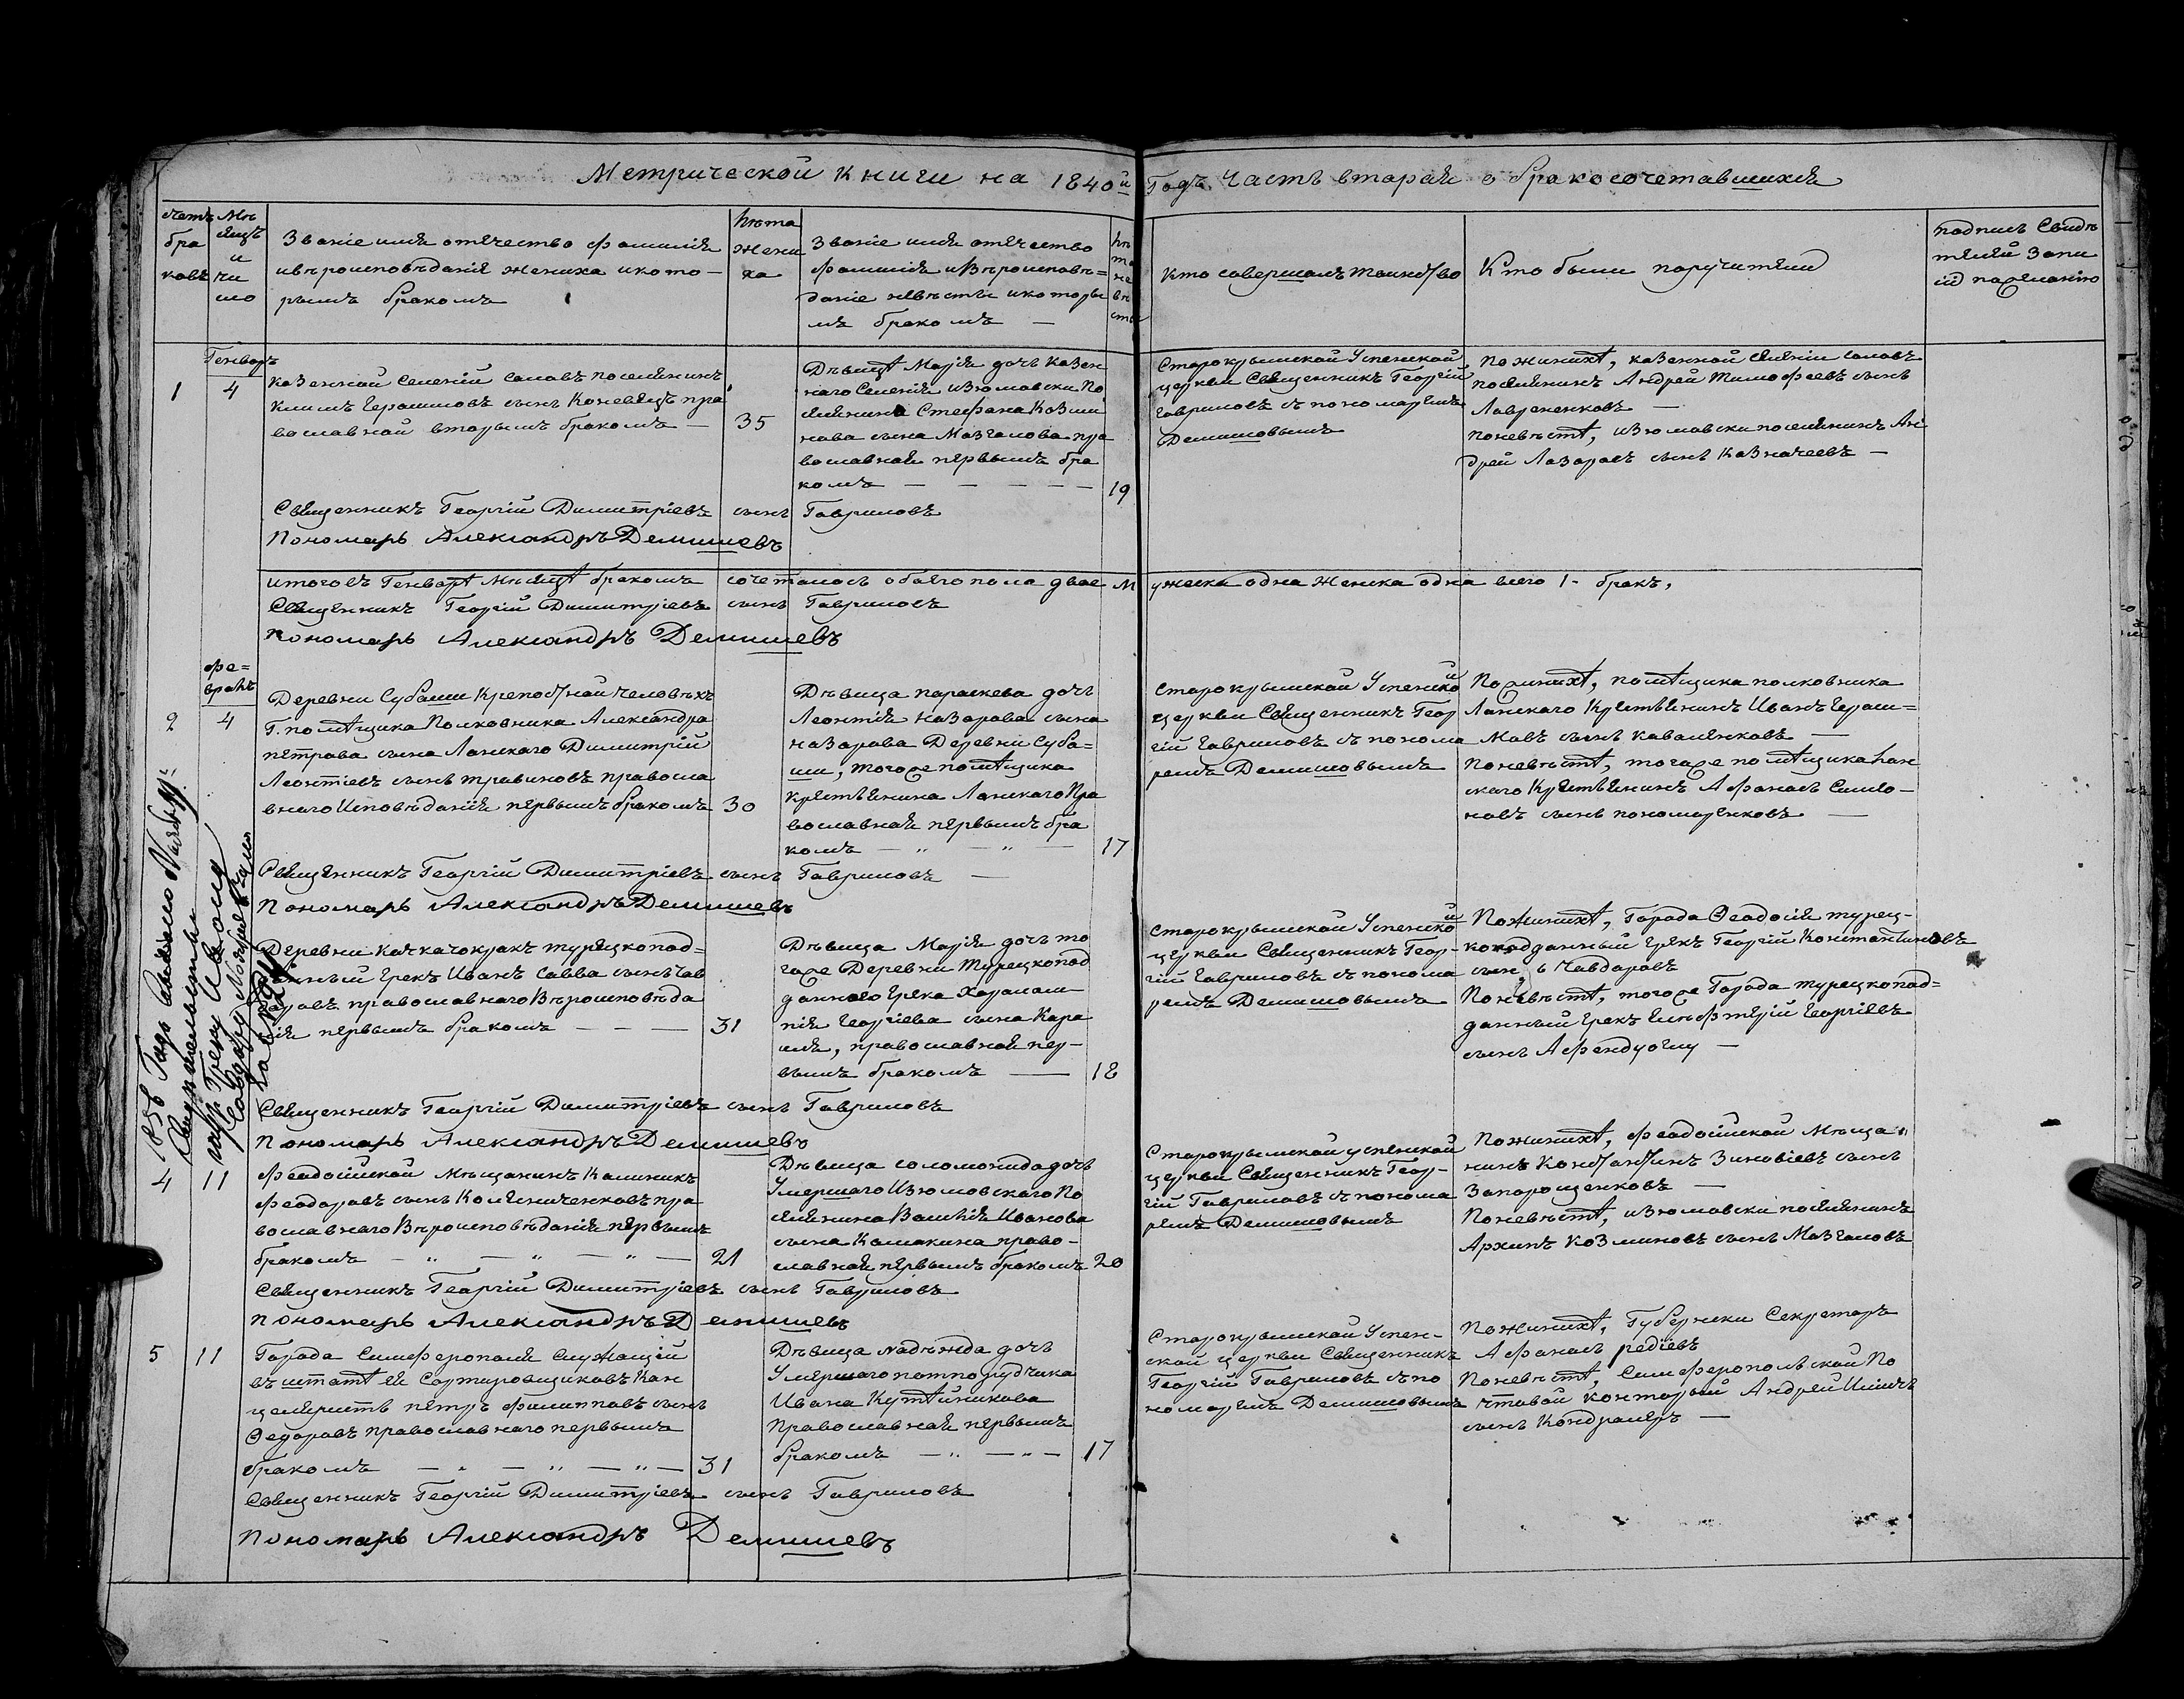 Метрической книги на 1840й Годъ Часть вторая о бракосочетавшихся
счетъ
бра
ковъ
Мѣ
сяцъ
и
чи
сло
Званіе имя отечество фамилія
ивѣроисповѣданія жениха икото-
рымъ бракомъ
Лѣта
жени
ха
Званіе имя отечество
фамилія иВѣроисповѣ=
даніе невѣсты икоторы
мъ бракомъ —
Лѣ
та
не
вѣ
сты
Кто совершалъ таинство
Кто были поручители
подпись Свидѣ
телей Запи
си пожеланію
Генварь
1
4
Казенной Селеній салавъ поселянинъ
Климъ Герасимовъ сынъ Коневецъ пра
вославной вторымъ бракомъ —
35
Дѣвицѣ Марія дочь Казен
наго Селенія изюмовски По
селянина Стефана Козми
нова сына Мозгалова пра
вославная первымъ бра
комъ — — — — —
19
Старокрымской Успенской
церкви Священникъ Георгій
Гавриловъ съ пономаремъ
Демишовымъ
Пожинихѣ, казенной селеніи салавъ
поселянинъ Андрей Тимофеевъ сынъ
Лаврененковъ —
Поневѣстѣ, изюмовски поселянинъ Ан
дрей Лазаревъ сынъ Казначеевъ —
Священникъ Георгій Димитріевъ сынъ Гавриловъ
Пономарь Александръ Демишевъ
итоговъ Генварѣ мѣсяцѣ бракомъ сочеталось обоего пола двое мужеска одна женска одна всего 1- бракъ,
Священникъ Георгій Димитріевъ сынъ Гавриловъ
Пономарь Александръ Демишевъ
фе=
враль
2
4
Деревни Субаши Крепостной человѣкъ
Г. помѣщика Полковника Александра
петрова сына Ланскаго Димитрій
Леонтіевъ сынъ травиновъ правосла
внаго Исповѣданія первымъ бракомъ
30
Дѣвица параскева дочь
Леонтія назарова сына
назарова Деревни Суба-
ши, тогоже помѣщика
крестьянина Ланскаго Пра
вославная первымъ бра
комъ — „ — „ —
17
Старокрымской Успенской
церкви Священникъ Геор
гій Гавриловъ съ понома
ремъ Демишовымъ
Пожинихѣ, помѣщика полковника
Ланскаго Крестьянинъ Иванъ Гераси=
мовъ сынъ каваленковъ —
Поневѣстѣ, тогоже помѣщика Лан
скаго Крестьянинъ Афанасъ Симео-
новъ сынъ пономаренковъ —
Священникъ Георгій Димитріевъ сынъ Гавриловъ —
Пономарь Александръ Демишевъ
Деревни Качкачокракъ турецкопод=
данный Грекъ Иванъ Савва сынъ Чав
даровъ православнаго Вѣроисповѣда
нія первымъ бракомъ — — —
31
Дѣвица Марія дочь то
гоже Деревни Турецкопод
даннаго Грека Харалам
пія Георгіева сына Кара
, православная пер-
вымъ бракомъ —
18
Старокрымской Успенской
церкви Священникъ Геор-
гій Гавриловъ съ понома
ремъ Демишовымъ
Пожинихѣ, Города Ѳеодосія турец-
коподданный грекъ Георгій Константиновъ
сынъ Чавдаровъ
Поневѣстѣ, тогоже Города турецкопод=
данный Грекъ Георгіевъ
сынъ Афендуоглу —
Священникъ Георгій Димитріевъ сынъ Гавриловъ
Пономарь Александръ Демишевъ
4
11
Феодосійской мѣщанинъ Калиникъ
Феодоровъ сынъ Колесниченковъ пра
вославнаго Вѣроисповѣданія первымъ
бракомъ — „ — „ — „ —
21
Дѣвица соломонида дочь
Умершаго Изюмовскаго По
селянина Василія Иванова
сына Камакина право-
славная первымъ бракомъ
20
Старокрымской успенской
церкви Священникъ Геор-
гій Гавриловъ съ понома
ремъ Демишовымъ
Пожинихѣ, феодосійской Мѣща
нинъ Константинъ Зиновіевъ сынъ
Запорощенковъ —
Поневѣстѣ, изюмовски поселянинъ
Архипъ Козминовъ сынъ Мазгаловъ
Священникъ Георгій Димитріевъ сынъ Гавриловъ
пономарь Александръ Демишевъ
5
11
Города Симферополя Служащій
въ штатѣ ея Сортировщиковъ Кан
целяристъ петръ филипповъ сынъ
Ѳедоровъ православнаго первымъ
бракомъ — „ — „ — „ —
31
Дѣвица Надѣжда дочь
Умершаго потпорудчика
Ивана Кутѣйникова
Православная первымъ
бракомъ — „ — „ —
17
Старокрымской Успен-
ской церкви Священникъ
Георгій Гавриловъ съ по
номаремъ Демишовымъ
Пожинихѣ, Губернски Секретарь
Афанасъ редіевъ
Поневѣстѣ, Симферопольской По
чтовой конторы Андрей
сынъ Кондрацеръ —
Священникъ Георгій Димитріевъ сынъ Гавриловъ
Пономарь Александръ Демишевъ
1856 Года
Свидѣтельство
Греку Ивану
Саввину